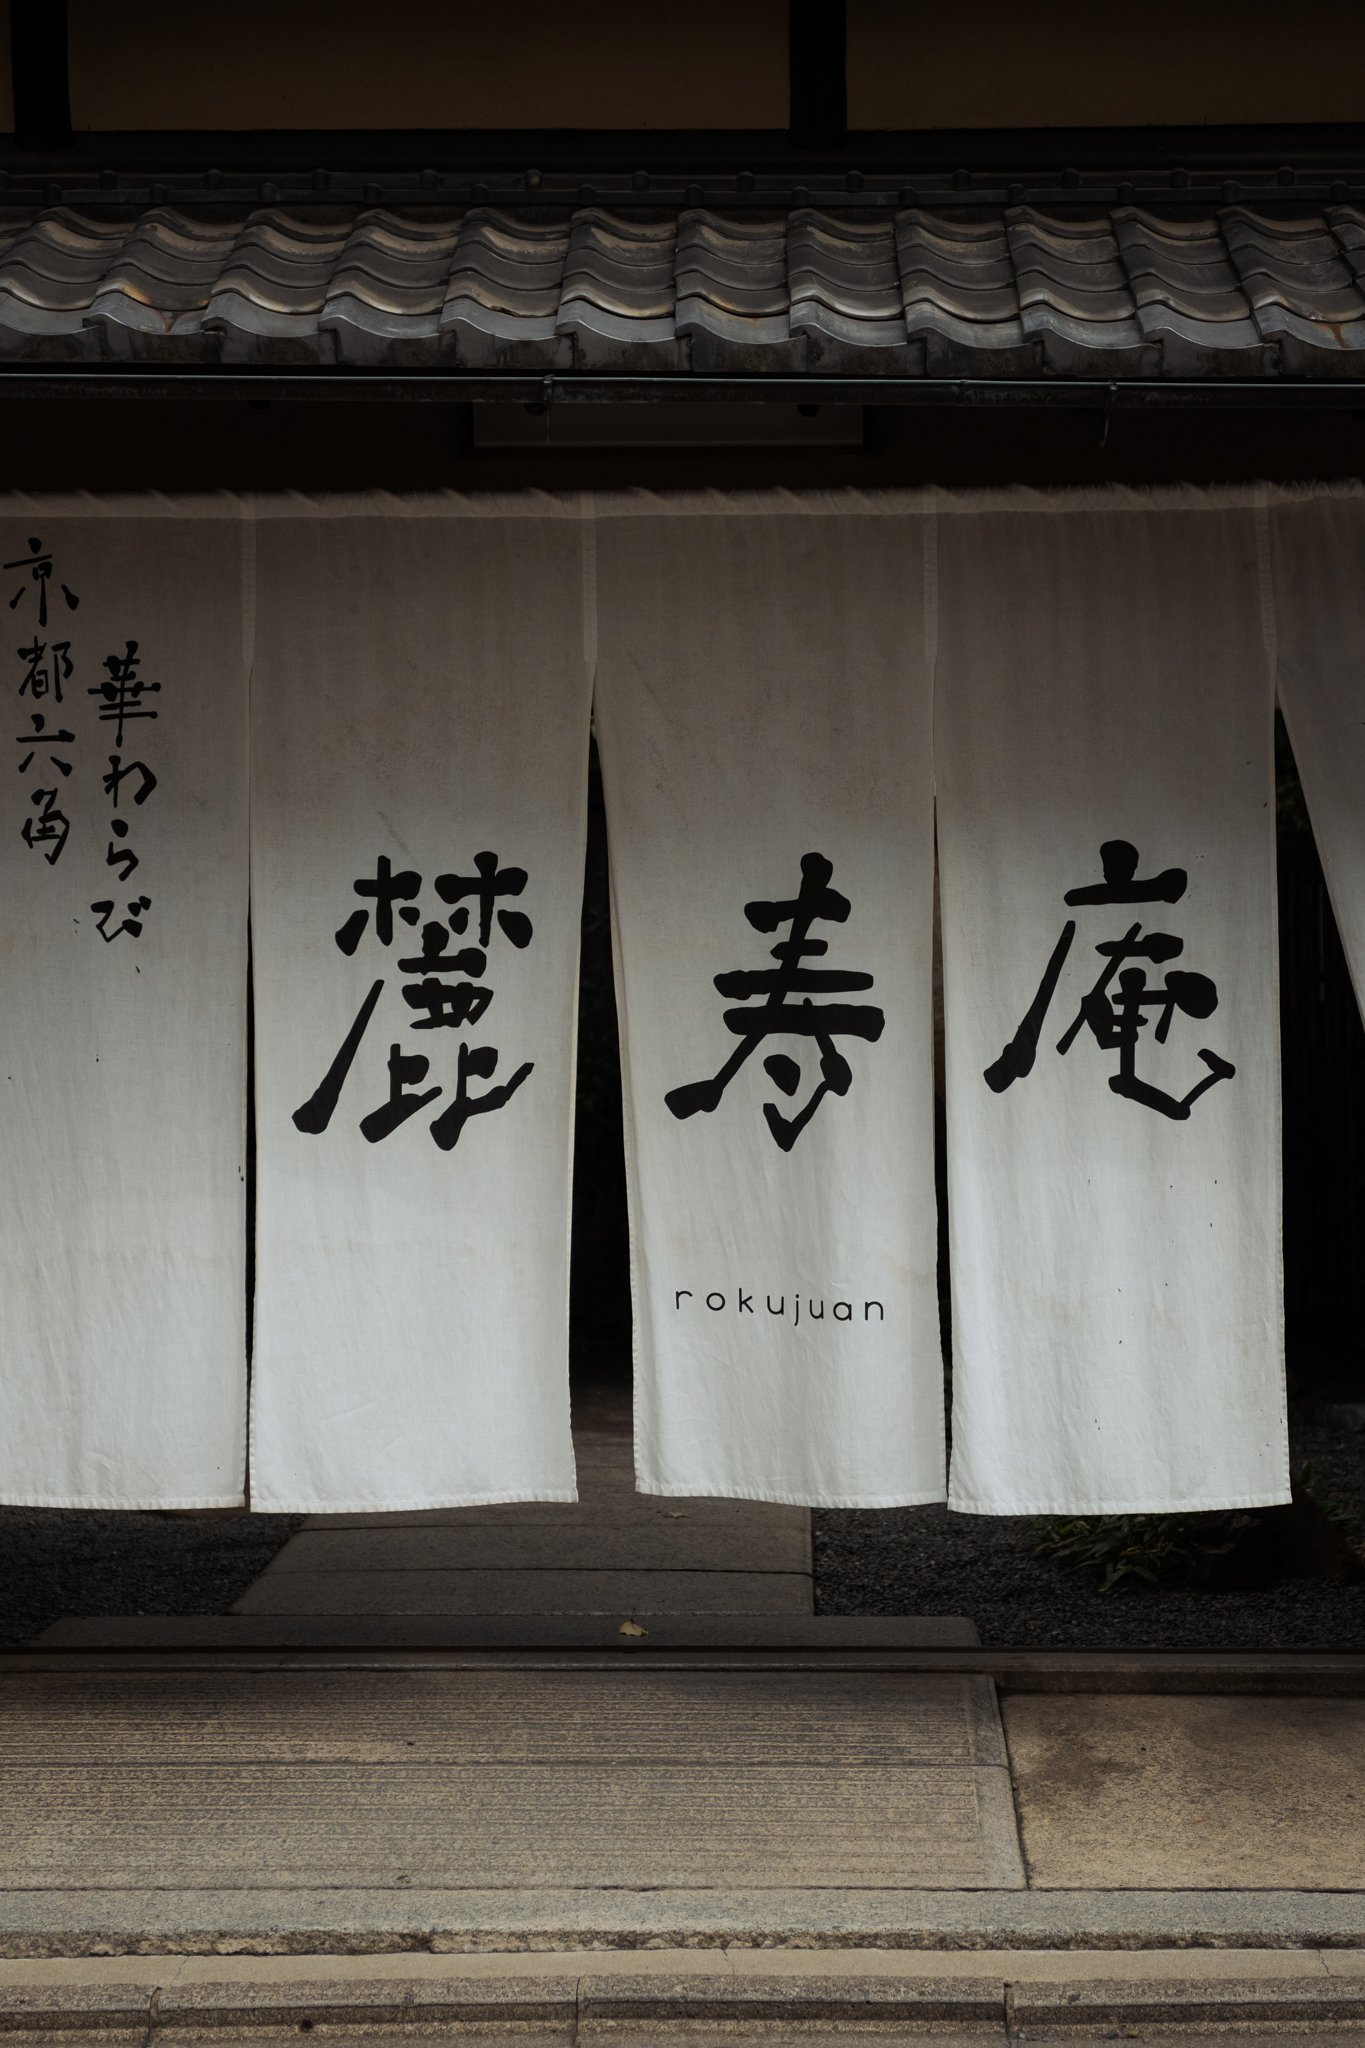 京都六角
華わらび
麓寿庵
rokujuan